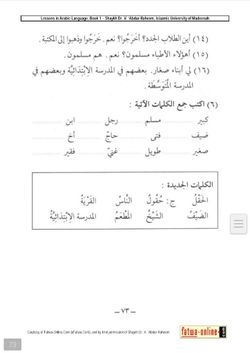 Lessons in Arabic Language, Book 1 - Shaykh Dr. V. 'Abdur-Raheem, Islamic University of Madeenah
(١٤) أين الطلاب الجدد؟ أخَرَجُوا؟ نعم . خَرَجُوا وذهبوا إلى المكتبة .
(١٥) أهؤلاء الأطباء مسلمون؟ نعم . هم مسلمون .
(١٦) لي أبناء صغار. بعضهم في المدرسة الِابْتِدَائِيَّة وبعضهم في
المدرسة المُتَوَسِّطَة.
(٦) اكتب جمع الكلمات الآتية :
كبير مسلم رجل ابن
ضيف فتى حاجّ أخ
صغير طويل غنيّ فقير
الكلمات الجديدة :
الحَقْلُ ج: حُقُولٌ النَّاسُ القَرْيَةُ
الضَّيْفُ الشَّيْخُ المَطْعَمُ المدرسة الِابْتِدَائِيَّةُ
– ٧٣ –
fatwa-online
73